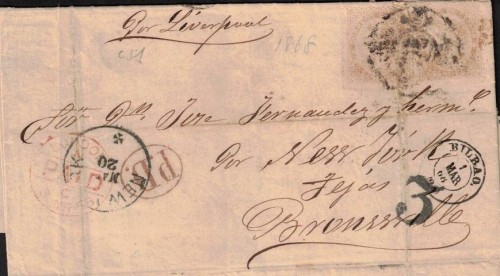 Por Liverpool
1868
Sr. Dn. Jose Fernandez y herm.º
Por New York
Tejas
Brownsville
P.D.
NEW
MAR
20
BILBAO
1
MAR
68
3